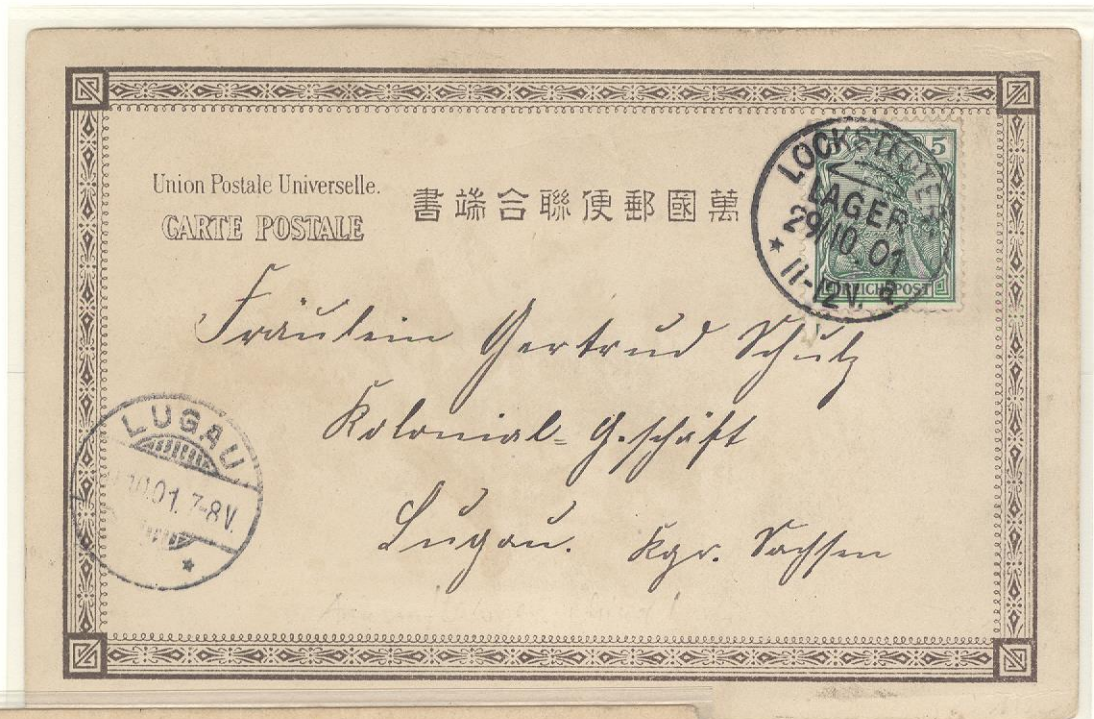 Union Postale Universelle.
CARTE POSTALE
書端合聯便郵國萬
5
REICHSPOST
LOCKSTEDTER
LAGER
29/10.01
11-12V.
Fräulein Gertrud Schulz
Kolonial=Geschäft
Lugau. Kgr. Sachsen
LUGAU
10.01. 7-8V.